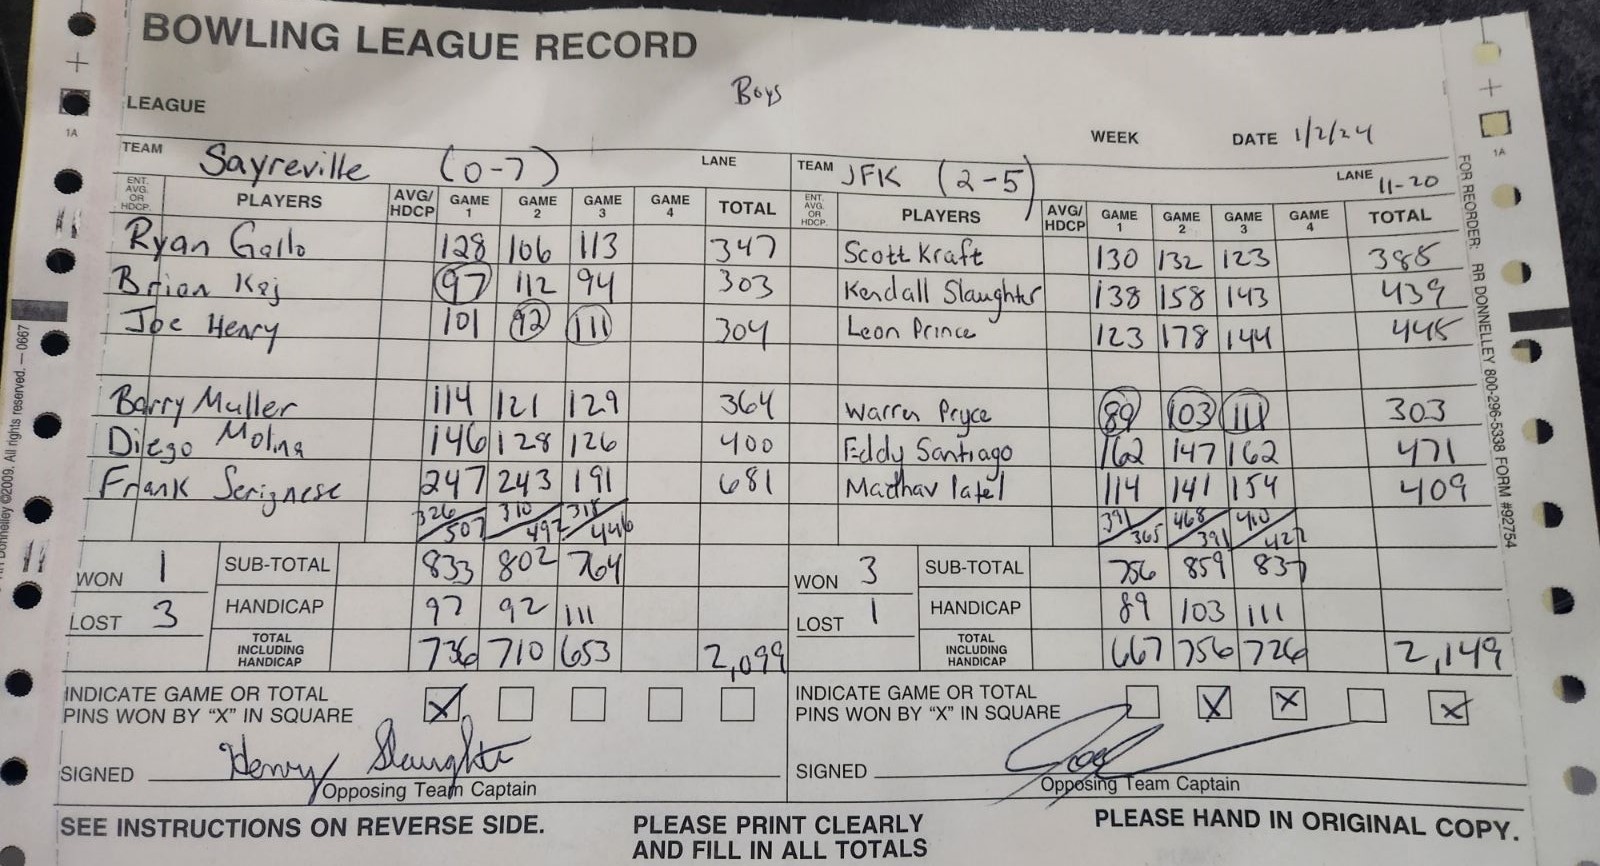 BOWLING LEAGUE RECORD
Boys
LEAGUE
WEEK DATE 1/2/24
TEAM Sayreville (0-7) LANE TEAM JFK (2-5) LANE 11-20
ENT. AVG. OR HDCP. PLAYERS AVG/ HDCP GAME 1 GAME 2 GAME 3 GAME 4 TOTAL ENT. AVG. OR HDCP. PLAYERS AVG/ HDCP GAME 1 GAME 2 GAME 3 GAME 4 TOTAL
Ryan Gallo 128 106 113 347 Scott Kraft 130 132 123 385
Brian Kaj 97 112 94 303 Kendall Slaughter 138 158 143 439
Joe Henry 101 92 111 304 Leon Prince 123 178 144 445
Barry Muller 114 121 129 364 Warren Pryce 89 103 111 303
Diego Molina 146 128 126 400 Eddy Santiago 162 147 162 471
Frank Serignese 247 243 191 681 Madhav Patel 114 141 154 409
326/507 310/492 318/446 391/365 468/391 410/427
WON 1 SUB-TOTAL 833 802 764 WON 3 SUB-TOTAL 756 859 837
LOST 3 HANDICAP 97 92 111 LOST 1 HANDICAP 89 103 111
TOTAL INCLUDING HANDICAP 736 710 653 2,099 TOTAL INCLUDING HANDICAP 667 756 726 2,149
INDICATE GAME OR TOTAL PINS WON BY "X" IN SQUARE X INDICATE GAME OR TOTAL PINS WON BY "X" IN SQUARE X X X
SIGNED Henry Slaughter SIGNED
Opposing Team Captain Opposing Team Captain
SEE INSTRUCTIONS ON REVERSE SIDE. PLEASE PRINT CLEARLY AND FILL IN ALL TOTALS PLEASE HAND IN ORIGINAL COPY.
1A
1A
Donnelley ©2009. All rights reserved. — 0667
FOR REORDER: RR DONNELLEY 800-296-5338 FORM #92754